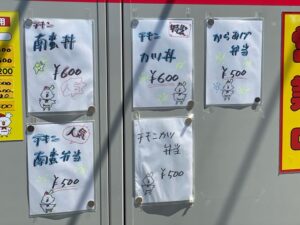 チキン
南蛮丼
¥600
人気
チキン
カツ丼
¥600
からあげ
弁当
¥500
チキン
人気
南蛮弁当
¥500
チキンカツ
弁当
¥500